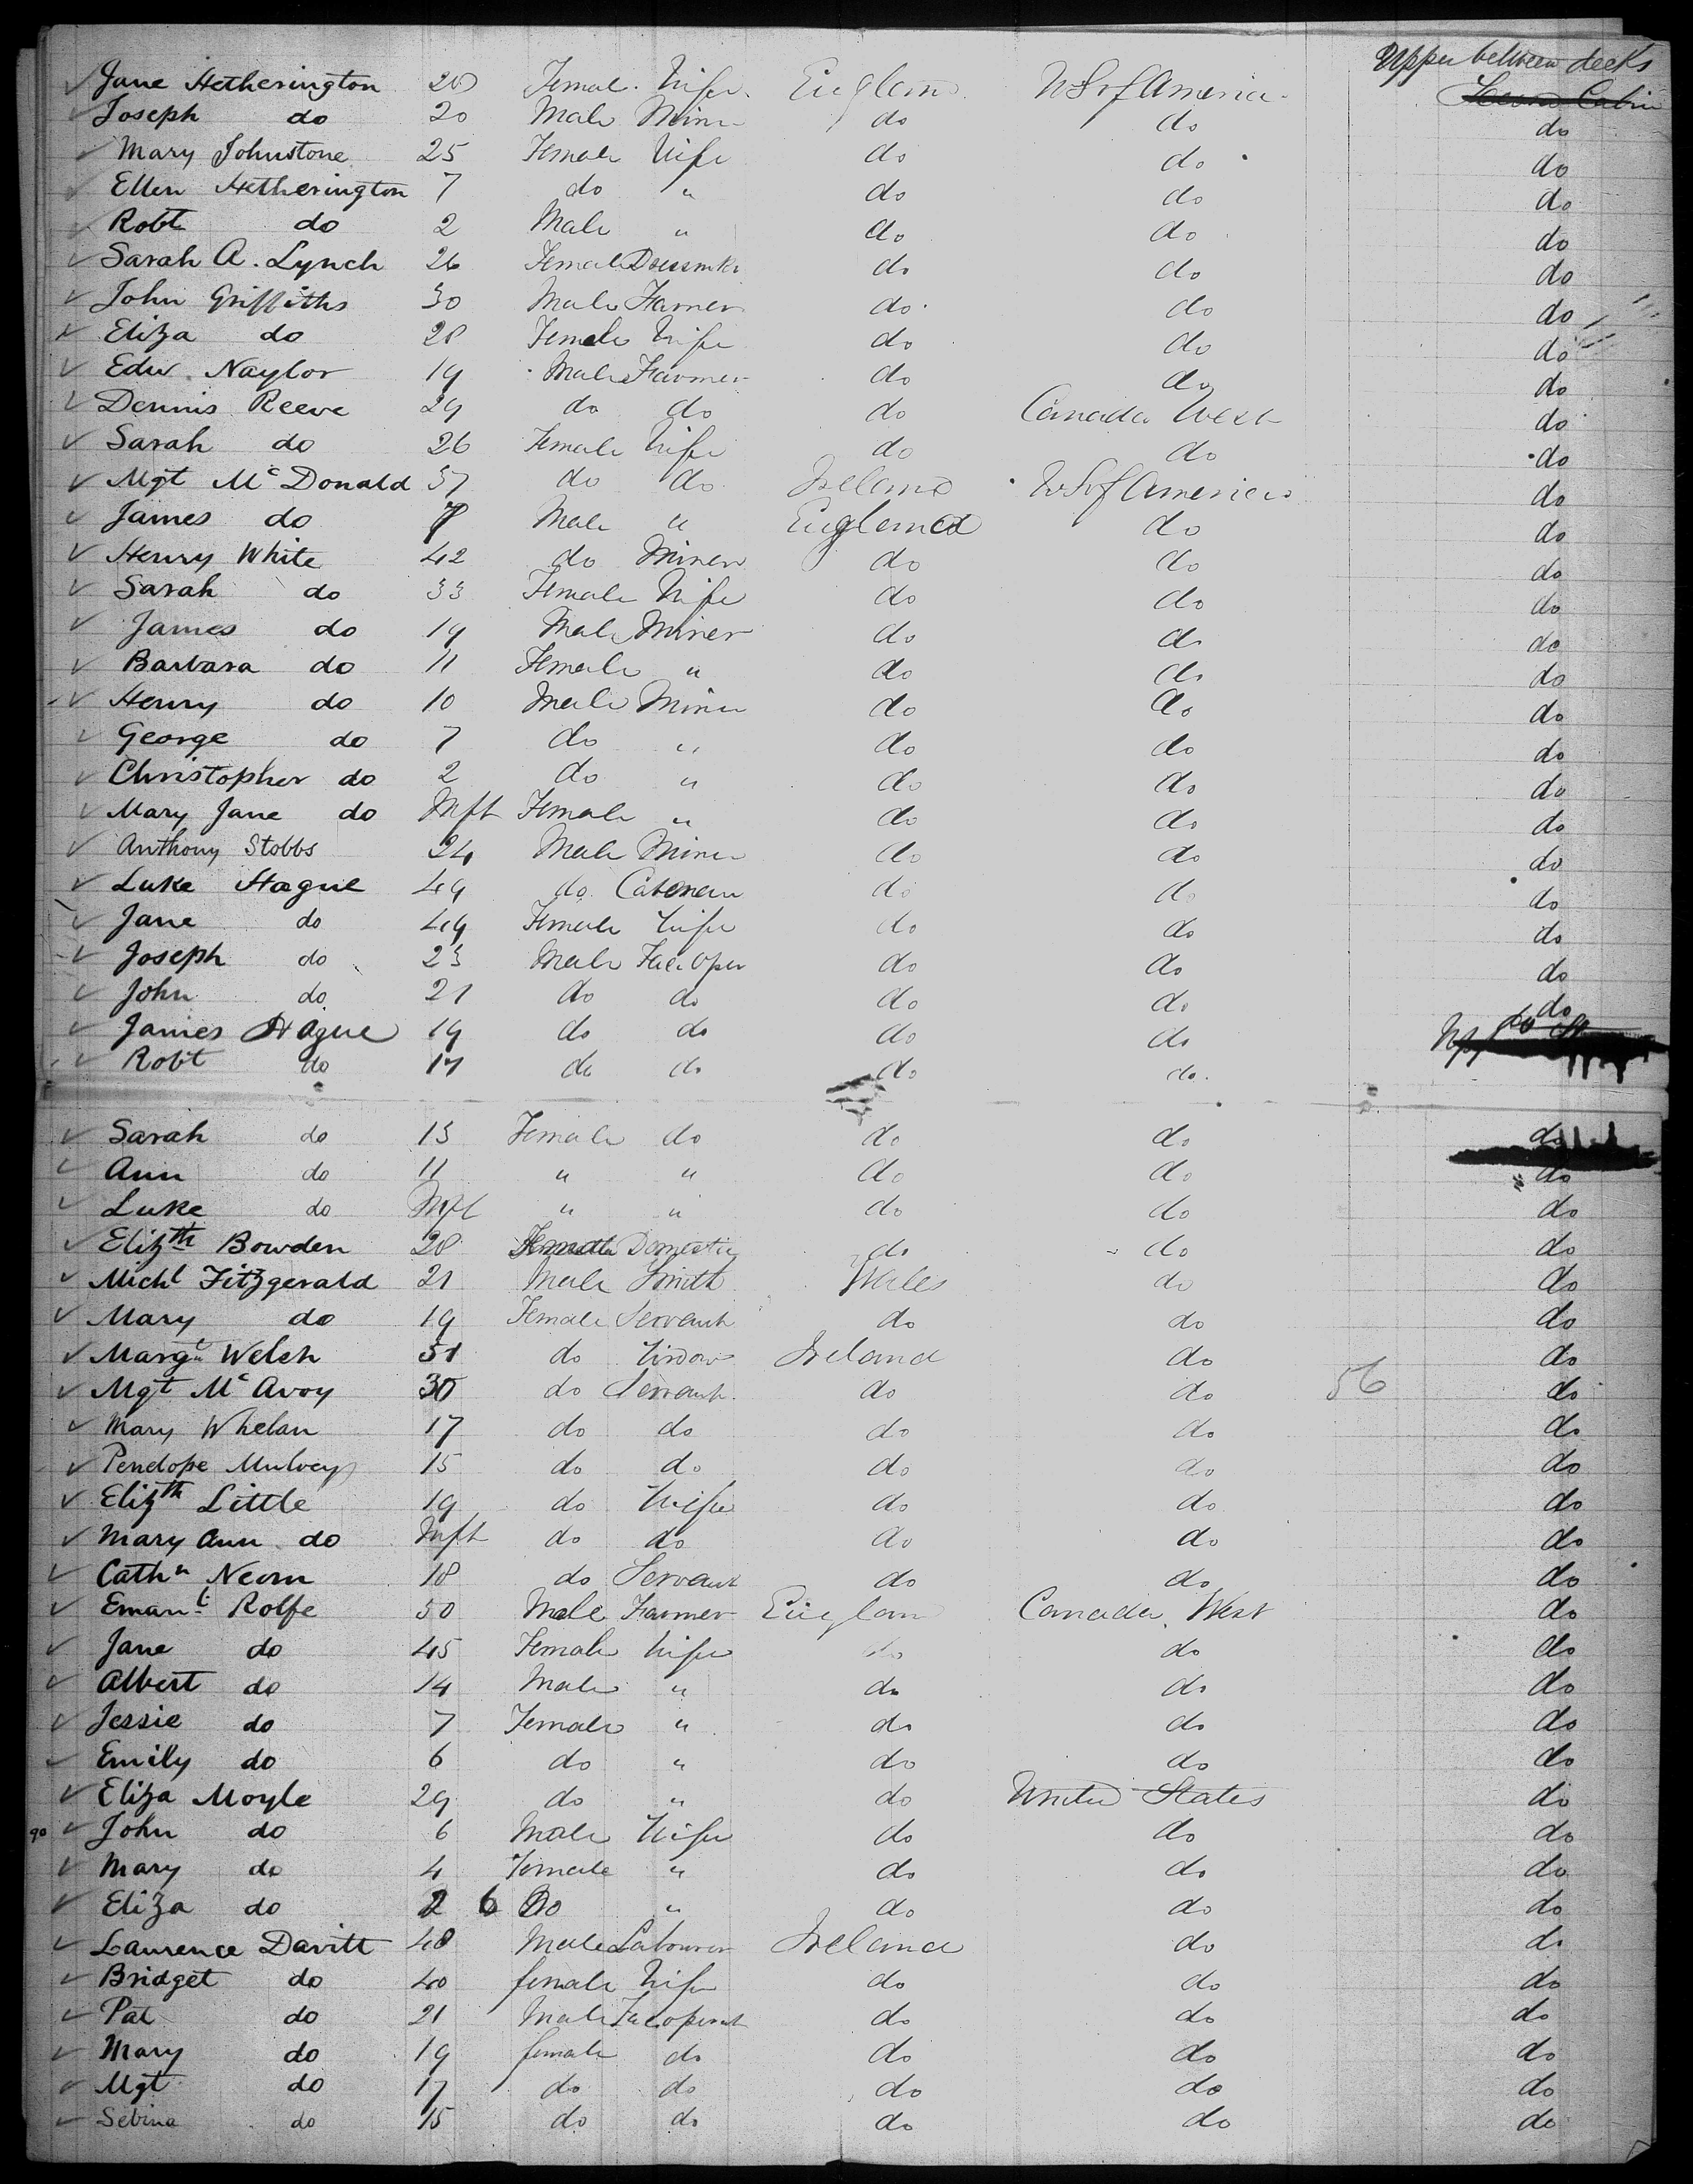 Upper between decks
Jane Hetherington 20 Female Wife England U S of America Second Cabin
Joseph do 20 Male Miner do do do
Mary Johnstone 25 Female Wife do do do
Ellen Hetherington 7 do " do do do
Robt do 2 Male " do do do
Sarah A. Lynch 26 Female Dressmkr do do do
John Griffiths 30 Male Farmer do do do
Eliza do 28 Female Wife do do do
Edw. Naylor 19 Male Farmer do do do
Dennis Reeve 29 do do do Canada West do
Sarah do 26 Female Wife do do do
Mgt McDonald 37 do do Ireland U S of America do
James do 7 Male " England do do
Henry White 42 do Miner do do do
Sarah do 33 Female Wife do do do
James do 19 Male Miner do do do
Barbara do 11 Female " do do do
Henry do 10 Male Miner do do do
George do 7 do " do do do
Christopher do 2 do " do do do
Mary Jane do Inft Female " do do do
Anthony Stobbs 24 Male Miner do do do
Luke Hague 49 do Cabman do do do
Jane do 49 Female Wife do do do
Joseph do 23 Male Fac Oper do do do
John do 21 do do do do do
James Hague 19 do do do do do
Robt do 17 do do do do
Sarah do 13 Female do do do do
Ann do 11 " " do do do
Luke do Inft " " do do do
Elizth Bowden 28 Female Domestic do do do
Michl Fitzgerald 21 Male Smith Wales do do
Mary do 19 Female Servant do do do
Margt Welsh 51 do Widow Ireland do do
Mgt McAvoy 30 do Servant do do 56 do
Mary Whelan 17 do do do do do
Penelope Mulvey 15 do do do do do
Elizth Little 19 do Wife do do do
Mary Ann do Inft do do do do do
Cathn 18 do Servant do do do
Emanl Rolfe 50 Male Farmer England Canada West do
Jane do 45 Female Wife do do do
Albert do 14 Male " do do do
Jessie do 7 Female " do do do
Emily do 6 do " do do do
Eliza Moyle 29 do " do United States do
90 John do 6 Male Wife do do do
Mary do 4 Female " do do do
Eliza do 2 6 Do " do do do
Laurence Davitt 48 Male Labourer Ireland do do
Bridget do 40 female Wife do do do
Pat do 21 Male Fac operat do do do
Mary do 19 female do do do do
Mgt do 17 do do do do do
Sebina do 15 do do do do do